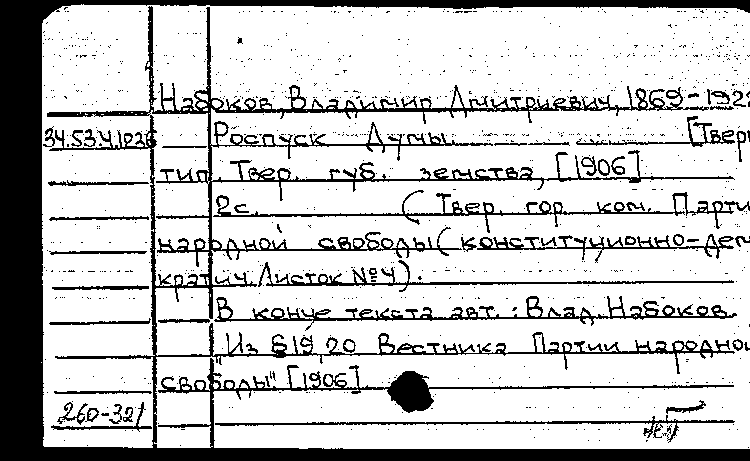 Набоков, Владимир Дмитриевич, 1869-1922
34.53.4.1026 Роспуск Думы. [Твер
тип. Твер. губ. земства, [1906]
2с. (Твер. гор. ком. Парти
народной свободы (конституционно-дем
кратич. Листок №4).
В конце текста авт.: Влад. Набоков.
"Из §19,20 Вестника Партии народно
свободы". [1906]
260-321